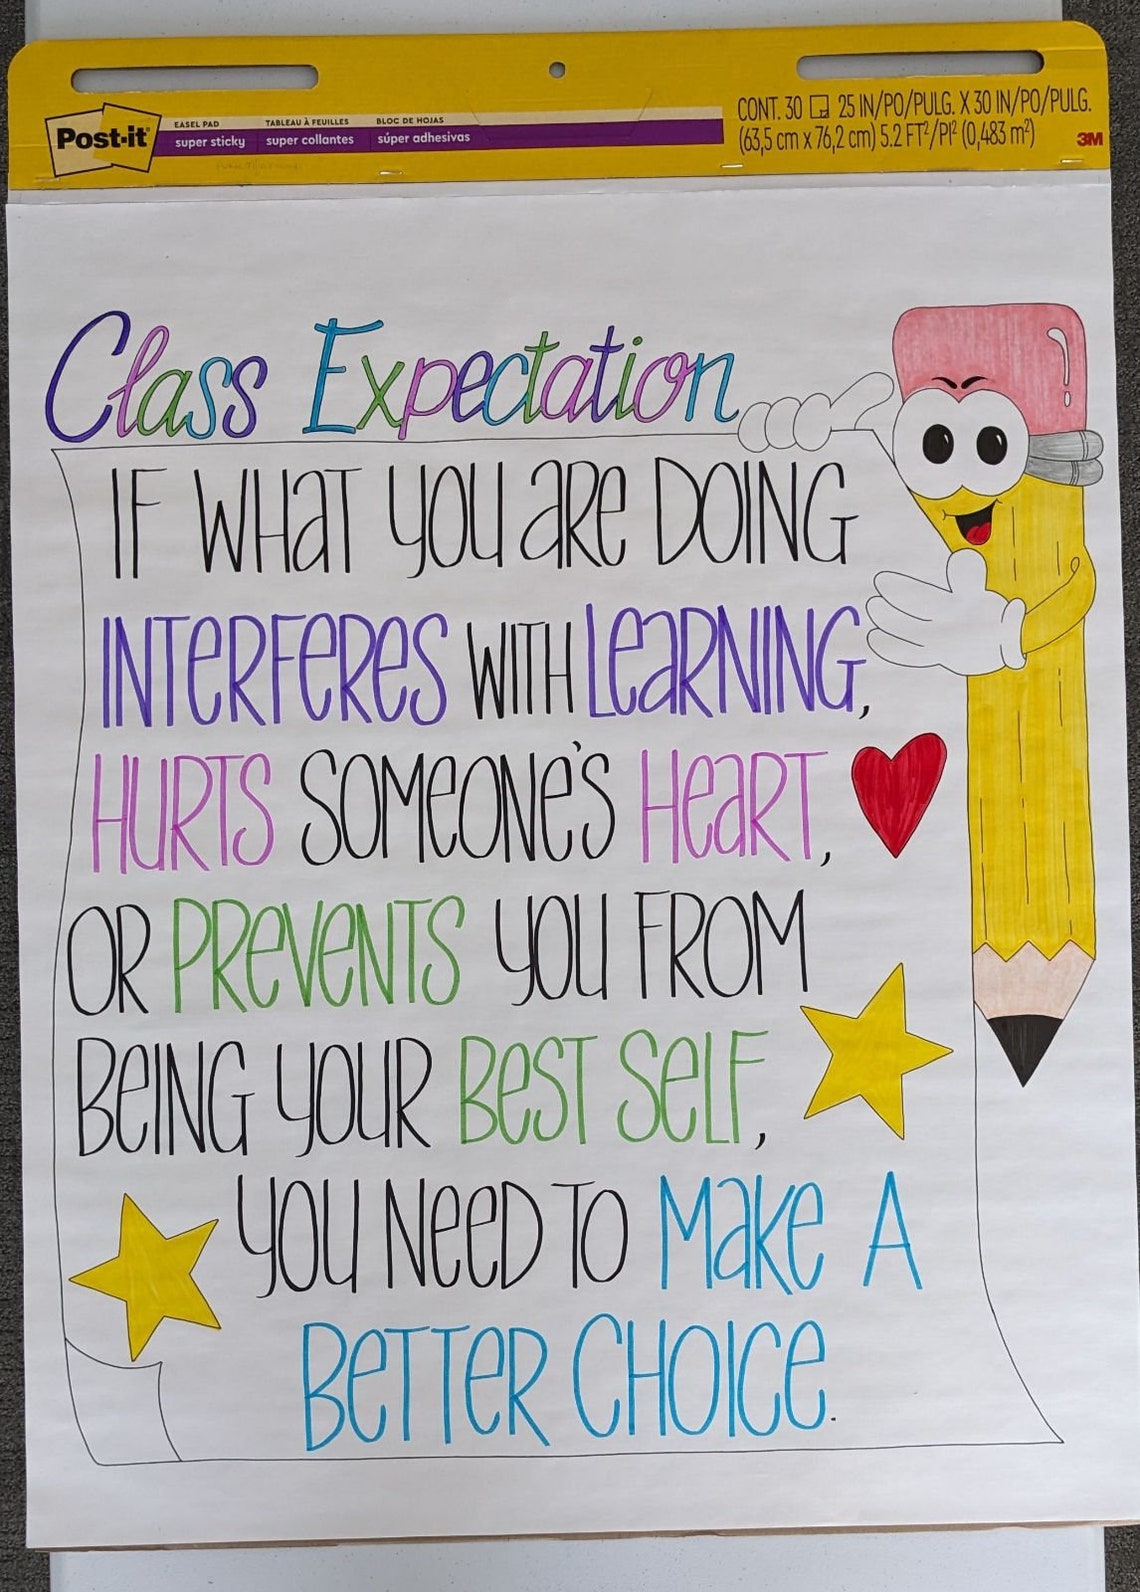 Post-it
EASEL PAD TABLEAU À FEUILLES BLOC DE HOJAS
super sticky super collantes súper adhesivas
CONT. 30 25 IN/PO/PULG. X 30 IN/PO/PULG.
(63,5 cm x 76,2 cm) 5.2 FT²/PI² (0,483 m²)
3M
Class Expectation
IF WHaT YOU aRe DOING
INTeRFeReS WITH LeaRNING,
HURTS SOMeONe'S HeaRT,
OR PReVeNTS YOU FROM
BeING YOUR BeST SeLF,
YOU NeeD TO MaKe A
BeTTeR CHOICe.